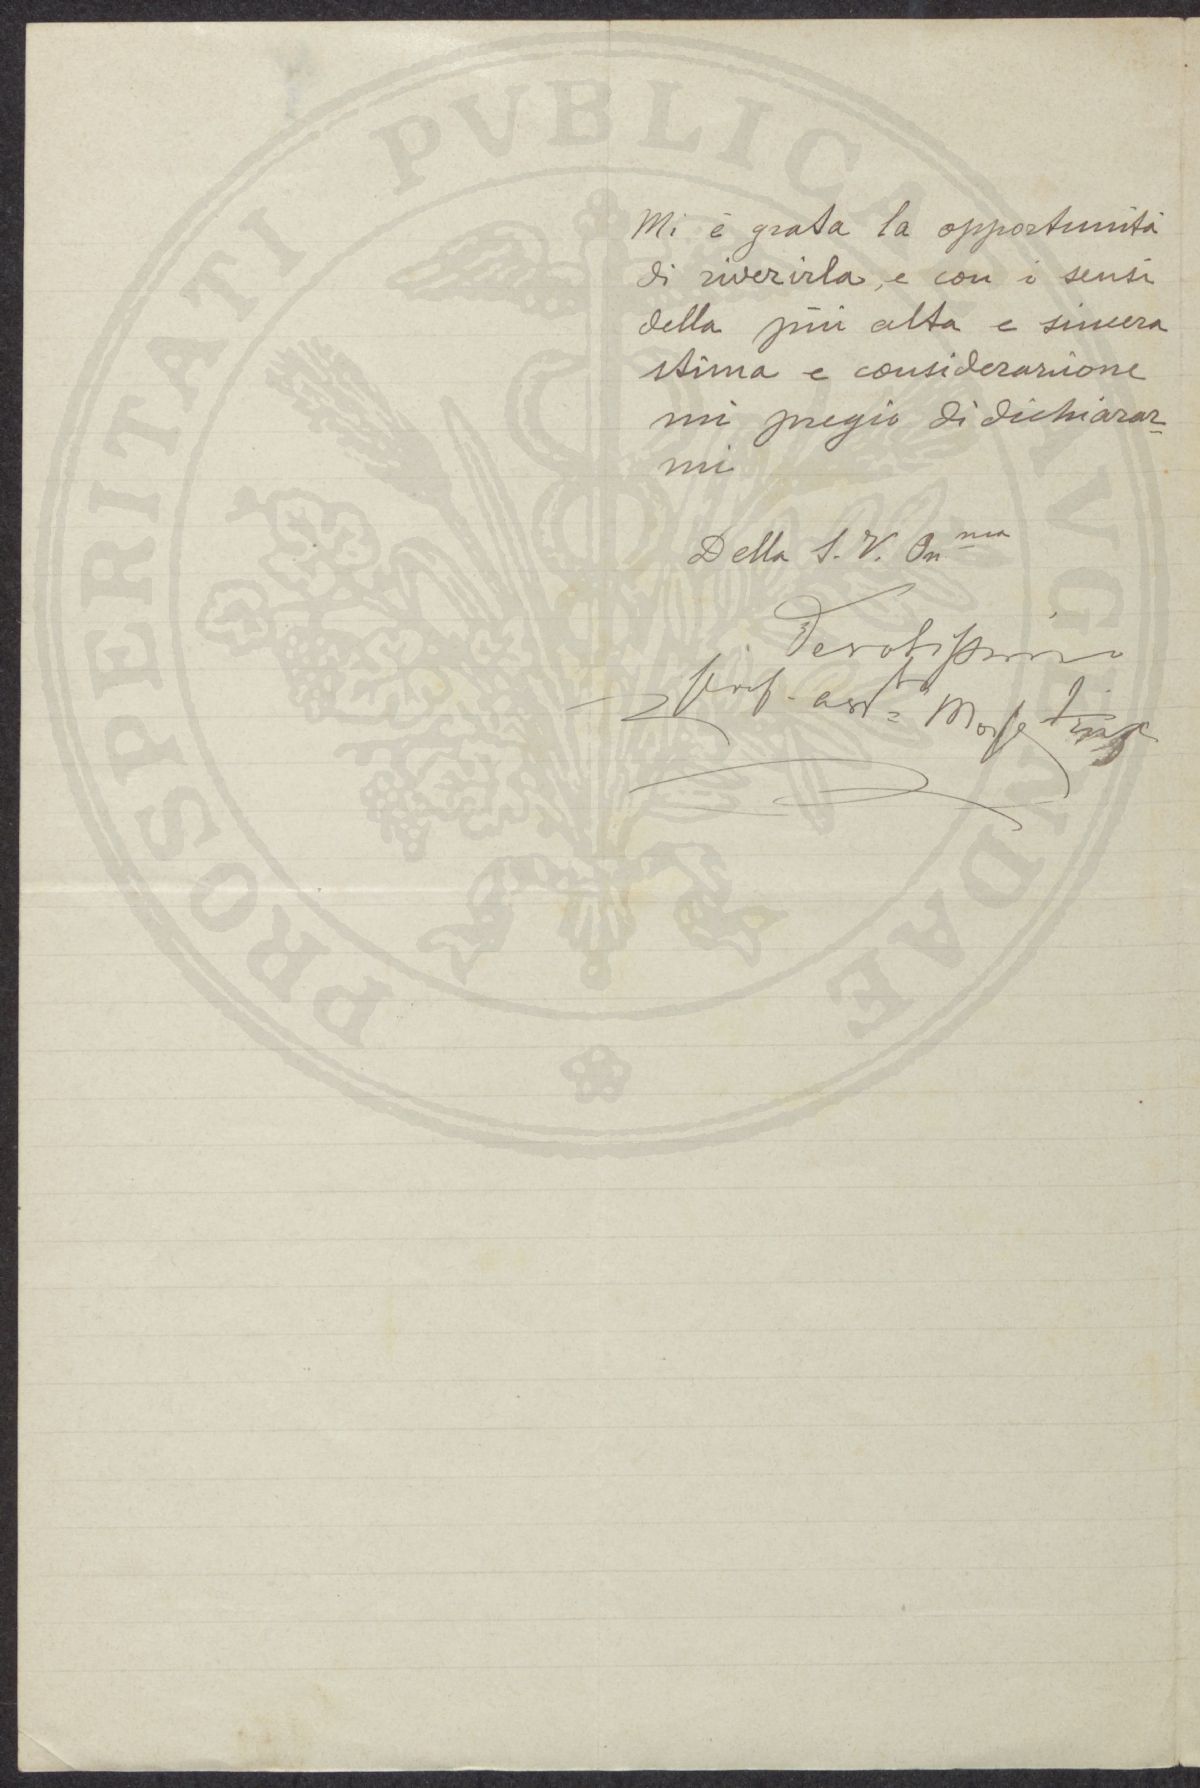 Mi è grata la opportunità
di riverirla, e con i sensi
della più alta e sincera
stima e considerazione
mi pregio di dichiarar-
mi
Della S. V. On ma
Devotissimo
prof.
PROSPERITATI PVBLICAE AVGENDAE